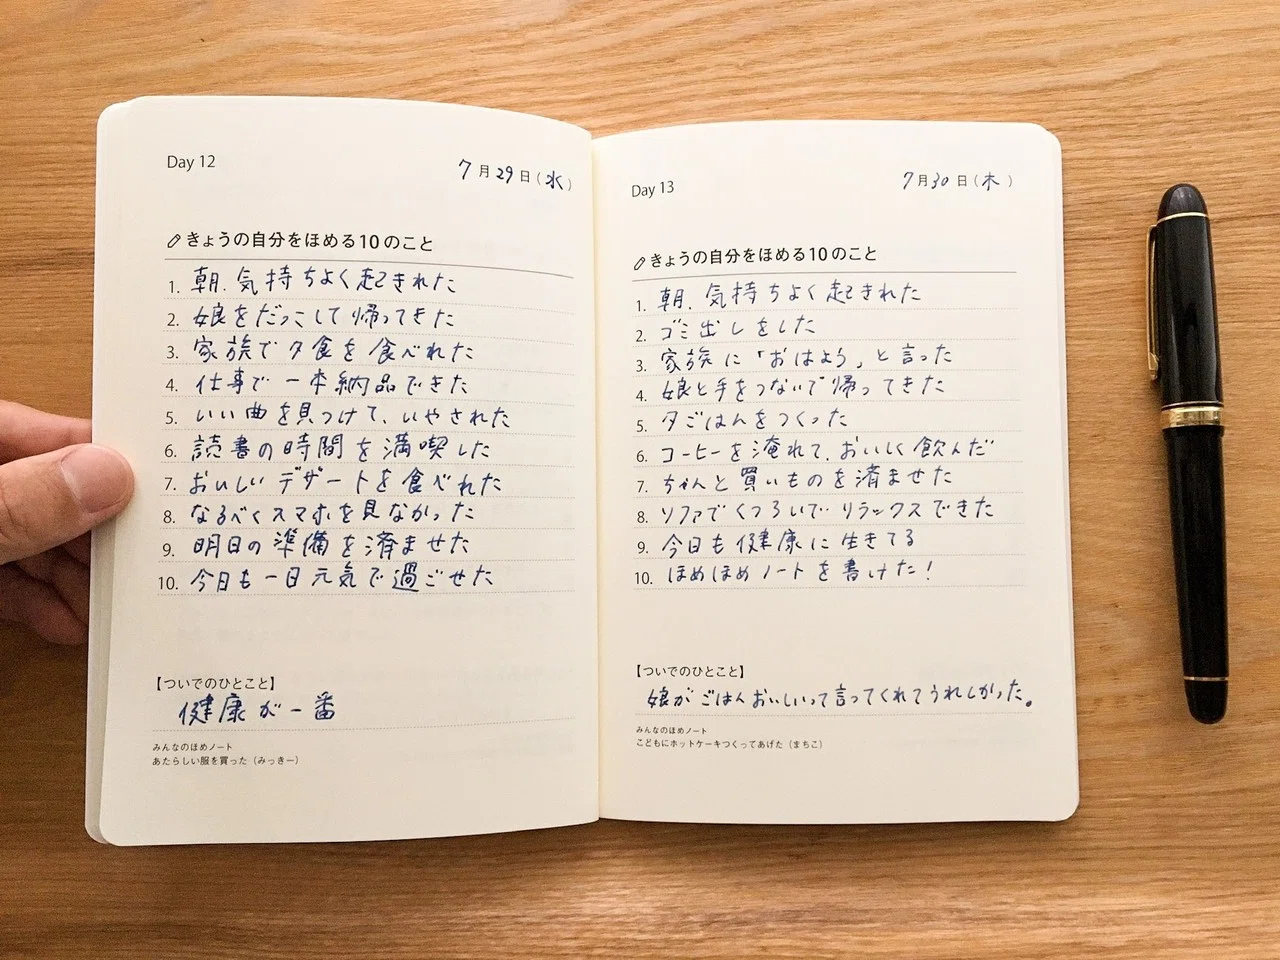 Day 12
7月29日(水)
きょうの自分をほめる10のこと
1. 朝、気持ちよく起きれた
2. 娘をだっこして帰ってきた
3. 家族で夕食を食べれた
4. 仕事で一本納品できた
5. いい曲を見つけて、いやされた
6. 読書の時間を満喫した
7. おいしいデザートを食べれた
8. なるべくスマホを見なかった
9. 明日の準備を済ませた
10. 今日も一日元気で過ごせた
【ついでのひとこと】
健康が一番
みんなのほめノート
あたらしい服を買った(みっきー)
Day 13
7月30日(木)
きょうの自分をほめる10のこと
1. 朝、気持ちよく起きれた
2. ゴミ出しをした
3. 家族に「おはよう」と言った
4. 娘と手をつないで帰ってきた
5. 夕ごはんをつくった
6. コーヒーを淹れて、おいしく飲んだ
7. ちゃんと買いものを済ませた
8. ソファでくつろいで リラックスできた
9. 今日も健康に生きてる
10. ほめほめノートを書けた!
【ついでのひとこと】
娘がごはんおいしいって言ってくれてうれしかった。
みんなのほめノート
こどもにホットケーキつくってあげた(まちこ)